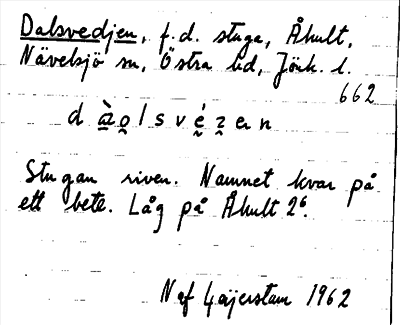 Dalsvedjen, f.d. stuga, Åhult,
Nävelsjö sn, Östra hd, Jönk. l.
662
d à̠o̬lsvé̬z̬en
Stugan riven. Namnet kvar på
ett bete. Låg på Åhult 2⁶.
N af Geijerstam 1962